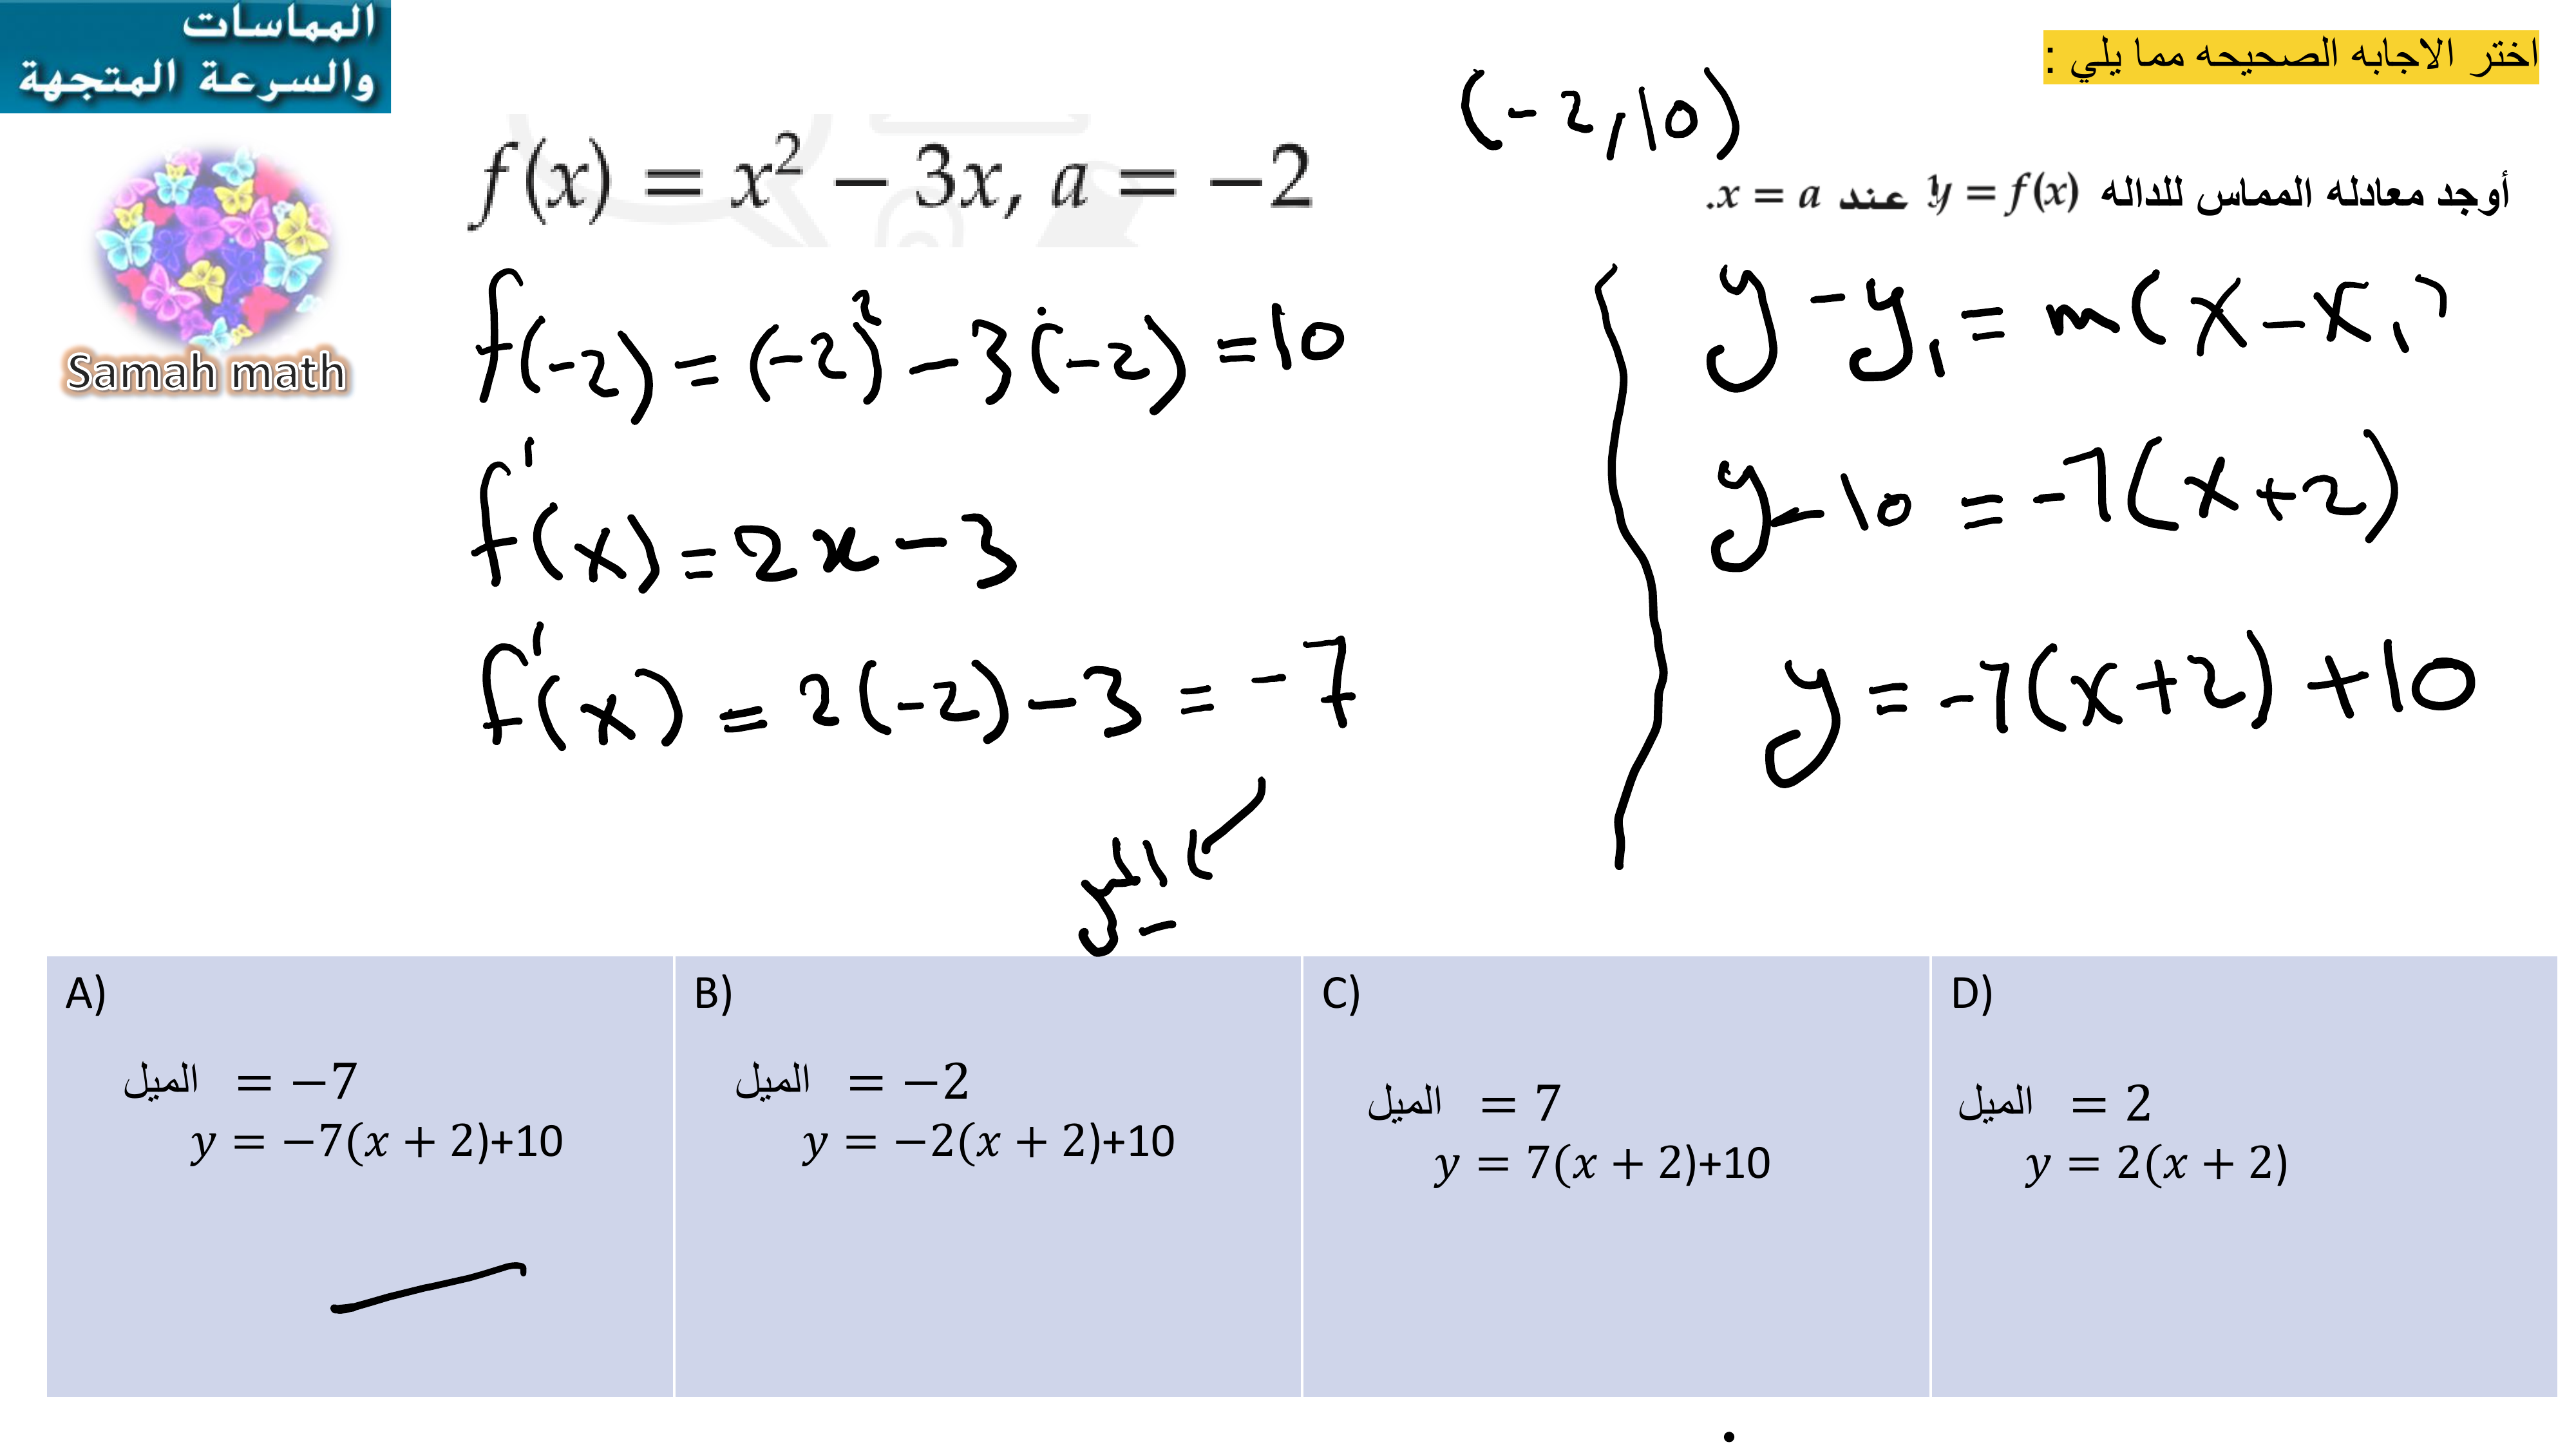 المماسات
والسرعة المتجهة
Samah math
اختر الاجابه الصحيحه مما يلي :
(-2,10)
أوجد معادله المماس للداله y = f(x) عند x = a.
f(x) = x² − 3x, a = −2
f(-2) = (-2)² - 3(-2) = 10
f'(x) = 2x - 3
f'(x) = 2(-2) - 3 = -7
الميل
y - y₁ = m(x - x₁)
y - 10 = -7(x+2)
y = -7(x+2) + 10
A)
الميل = −7
y = −7(x + 2)+10
B)
الميل = −2
y = −2(x + 2)+10
C)
الميل = 7
y = 7(x + 2)+10
D)
الميل = 2
y = 2(x + 2)